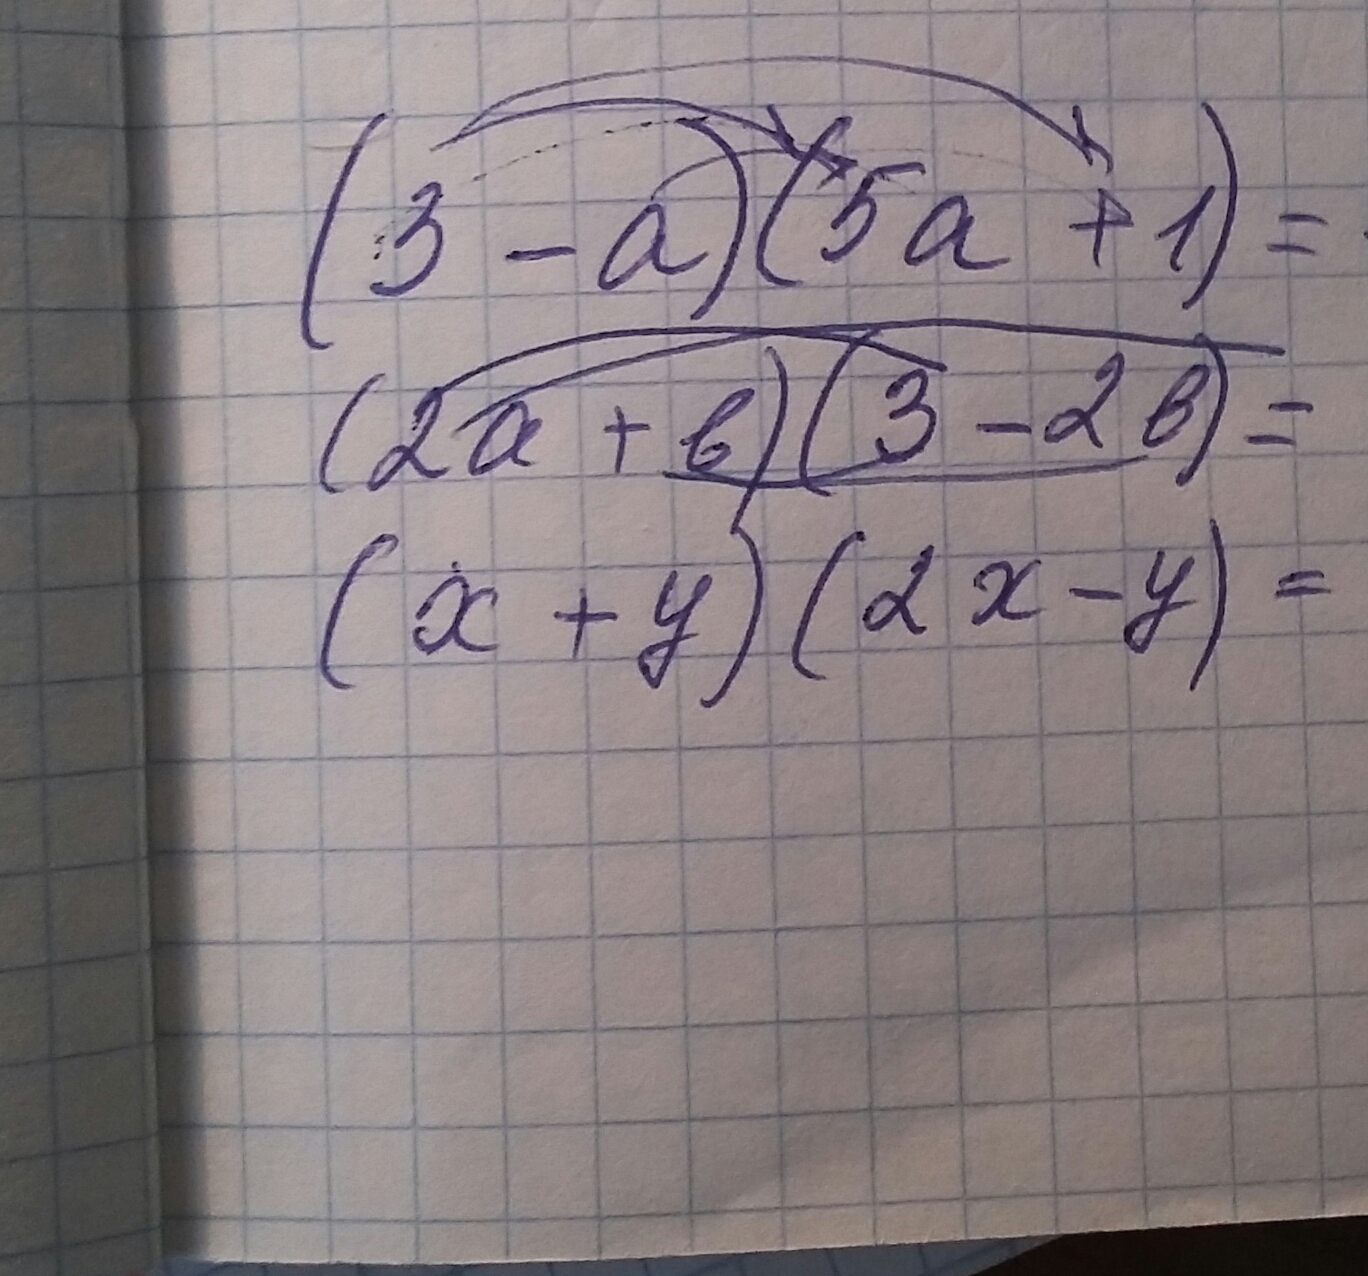 (3 - a)(5a + 1) =
(2a + b)(3 - 2b) =
(x + y)(2x - y) =